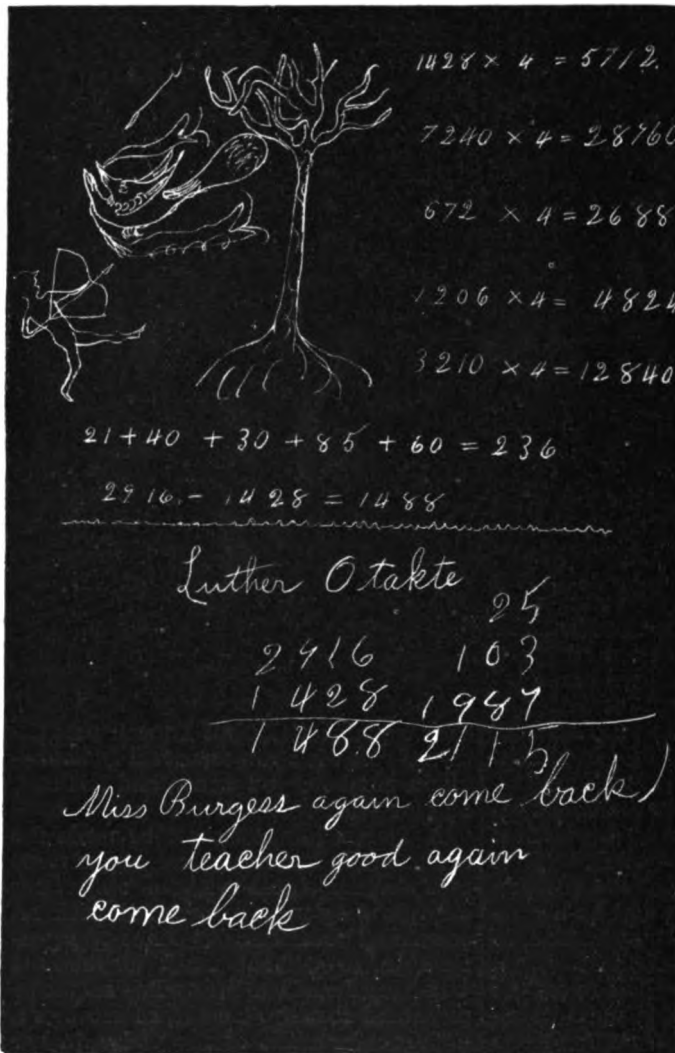 1428 × 4 = 5712.
7240 × 4 = 28960
672 × 4 = 2688
1206 × 4 = 4824
3210 × 4 = 12840
21 + 40 + 30 + 85 + 60 = 236
2916. - 1428 = 1488
Luther Otakte
25
2916 103
1428 1987
1488 2115
Miss Burgess again come back)
you teacher good again
come back